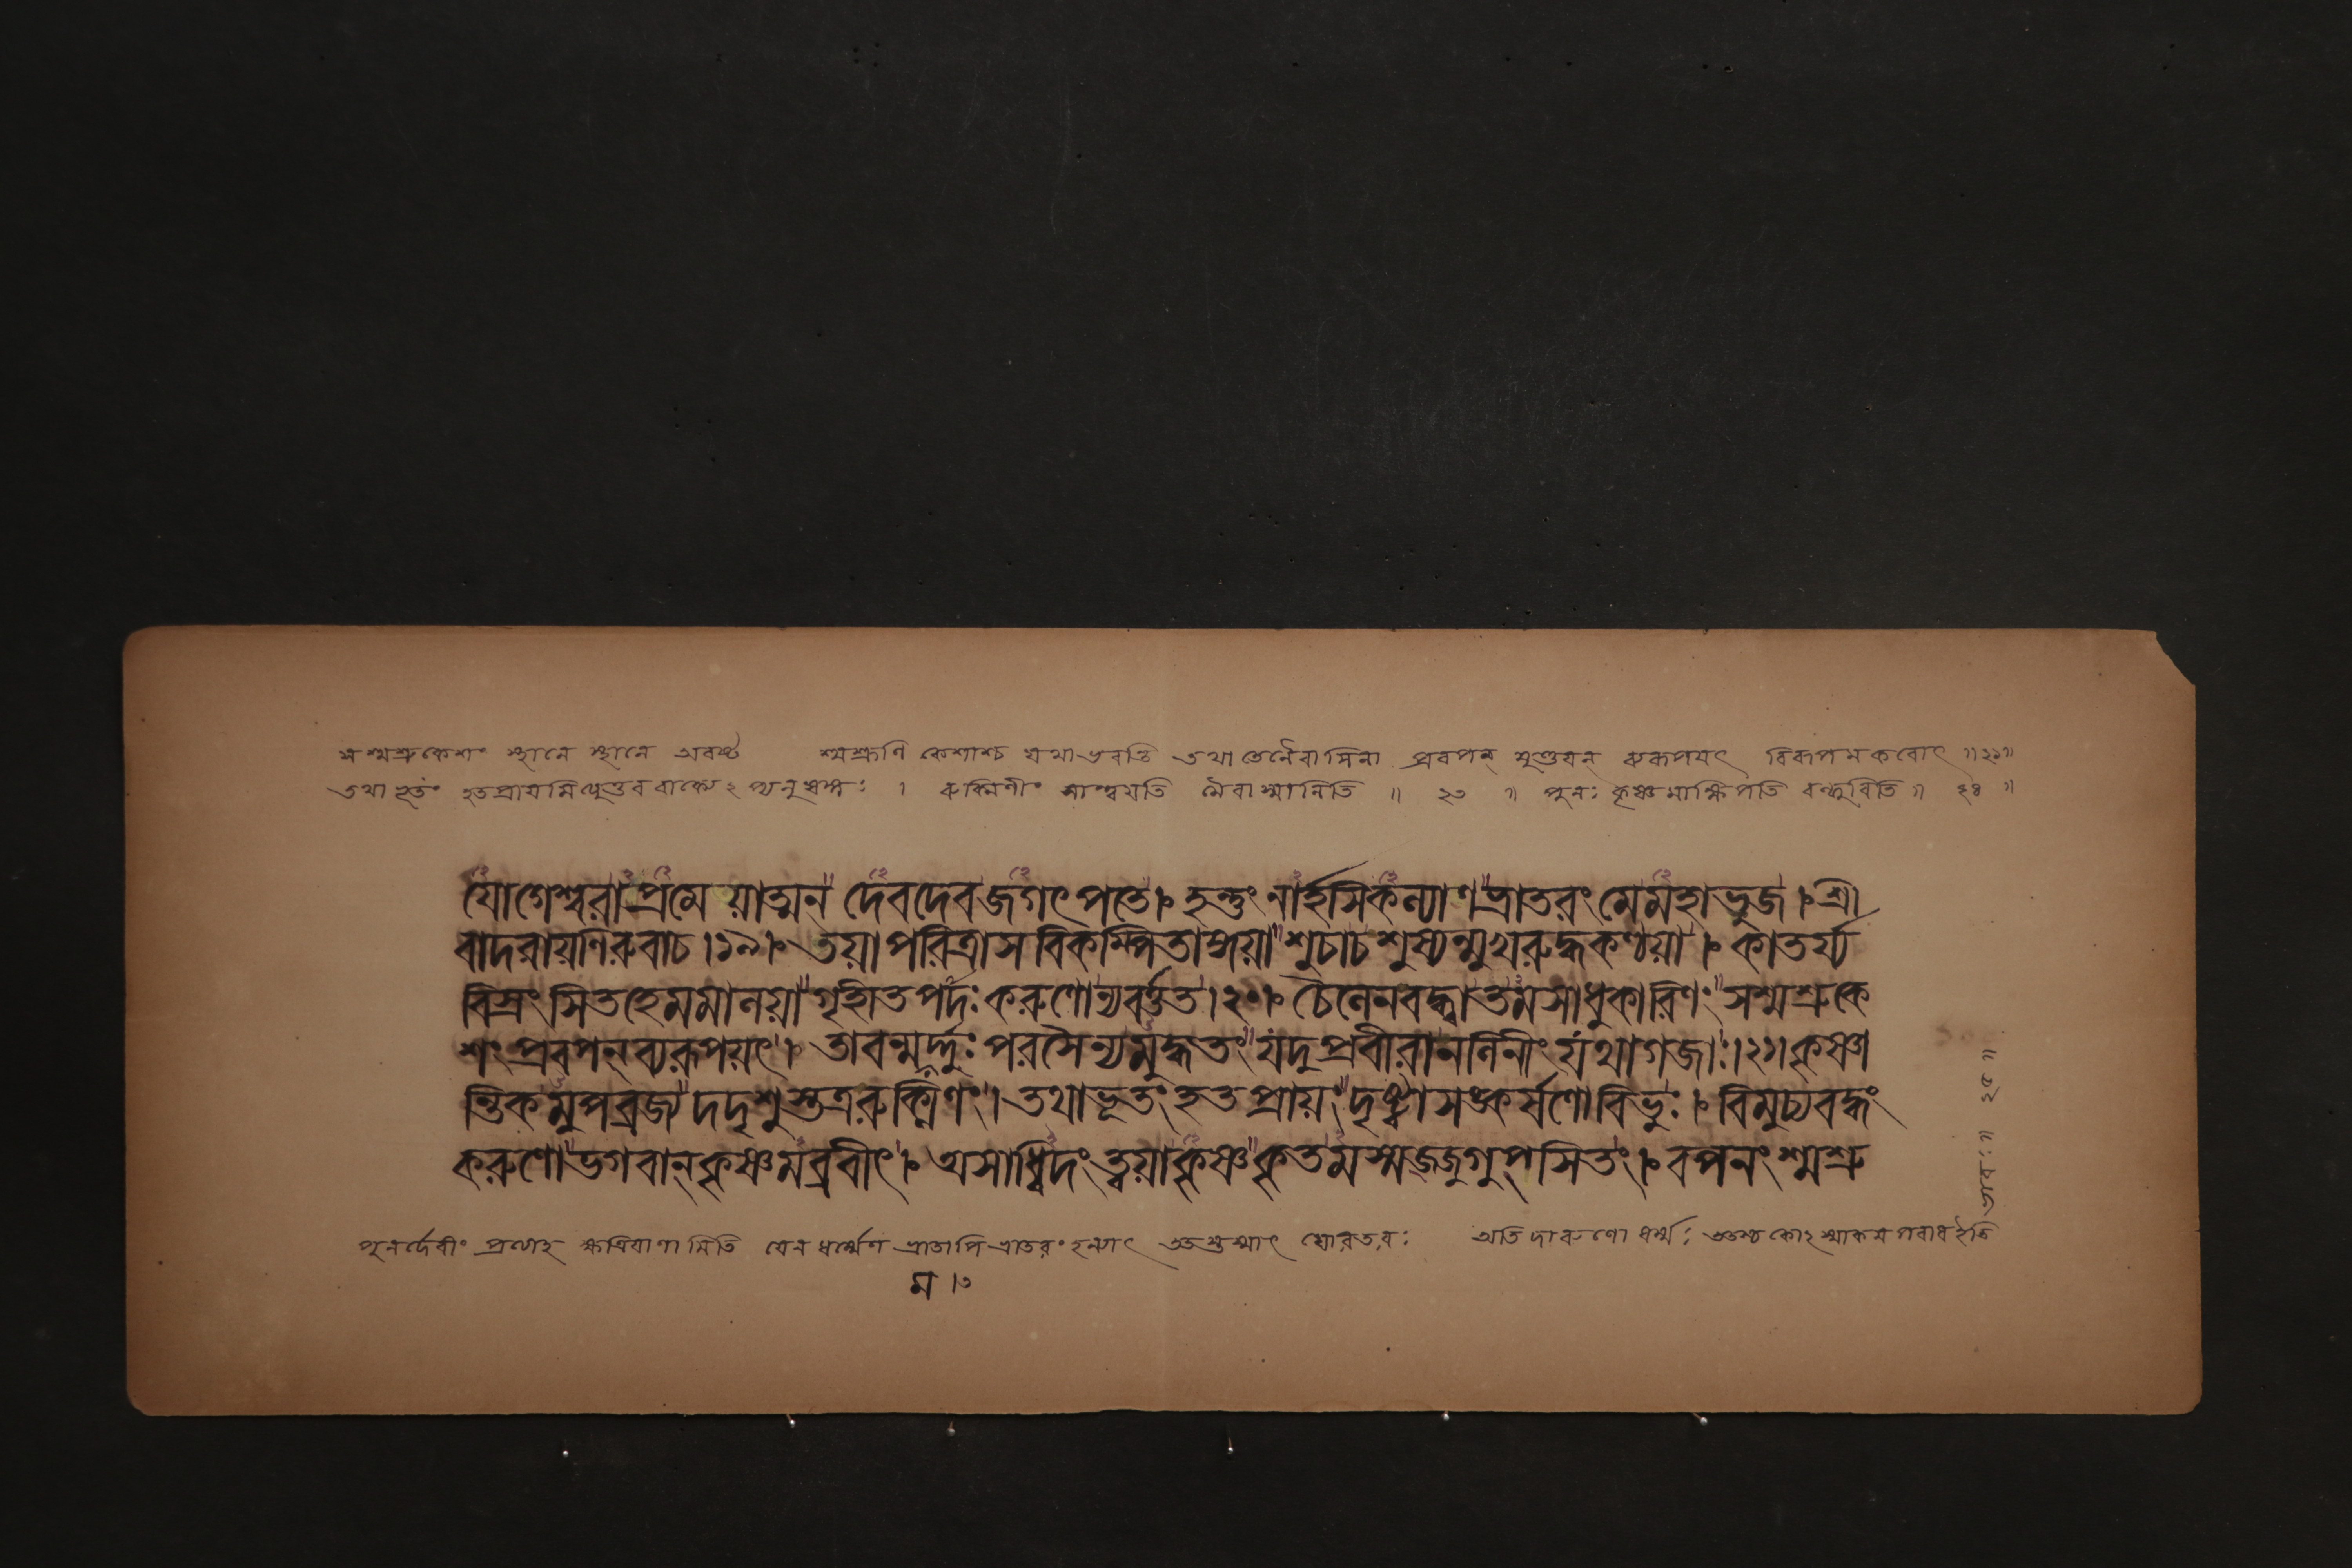 সশ্মশ্রুকেশং স্থানে স্থানে শ্মশ্রূণি কেশাশ্চ যথা ভবন্তি তথা তেনৈবাসিনা প্রবপন্ মুণ্ডয়ন্ বিরূপমকরোৎ ॥২১॥
তথাভূতং হতপ্রায়মিত্যুত্তরবাক্যেঽপ্যনুষঙ্গঃ । রুক্মিণীং সান্ত্বয়তি মৈবাস্মানিতি ॥ ২৩ ॥ পুনঃ কৃষ্ণমাক্ষিপতি বন্ধুরিতি ॥ ২৪ ॥
যোগেশ্বরাপ্রমেয়াত্মন্ দেবদেবজগৎপতে । হন্তুং নার্হসিকল্যাণভ্রাতরং মেমহাভুজ । শ্রী
বাদরায়ণিরুবাচ ।১৯। তয়াপরিত্রাসবিকম্পিতাঙ্গয়া শুচাচশুষ্যন্মুখরুদ্ধকণ্ঠয়া । কাতর্য্য
বিস্রংসিতহেমমালয়া গৃহীতপদঃ করুণোন্যবর্ত্তত ।২০। চৈলেনবদ্ধ্বাতমসাধুকারিণং সশ্মশ্রুকে
শং প্রবপন্ ব্যরূপয়ৎ । তাবন্মমর্দ্দুঃ পরসৈন্যমদ্ভুতং যদুপ্রবীরানলিনীং যথাগজাঃ ।২১। কৃষ্ণা
ন্তিকমুপব্রজ্য দদৃশুস্তত্ররুক্মিণং । তথাভূতং হতপ্রায়ং দৃষ্ট্বাসঙ্কর্ষণোবিভুঃ । বিমুচ্যবদ্ধং
করুণোভগবান্ কৃষ্ণমব্রবীৎ । অসাধ্বিদং ত্বয়াকৃষ্ণ কৃতমস্মজ্জুগুপ্সিতং । বপনং শ্মশ্রু
পুনর্দেবীং প্রত্যাহ ক্ষত্রিয়াণামিতি যেন ধর্ম্মেণ ভ্রাতাপি ভ্রাতরং হন্যাৎ ঘোরতরঃ অতি দারুণো ধর্ম্মঃ
ম ।৩
॥ ২৫ ॥